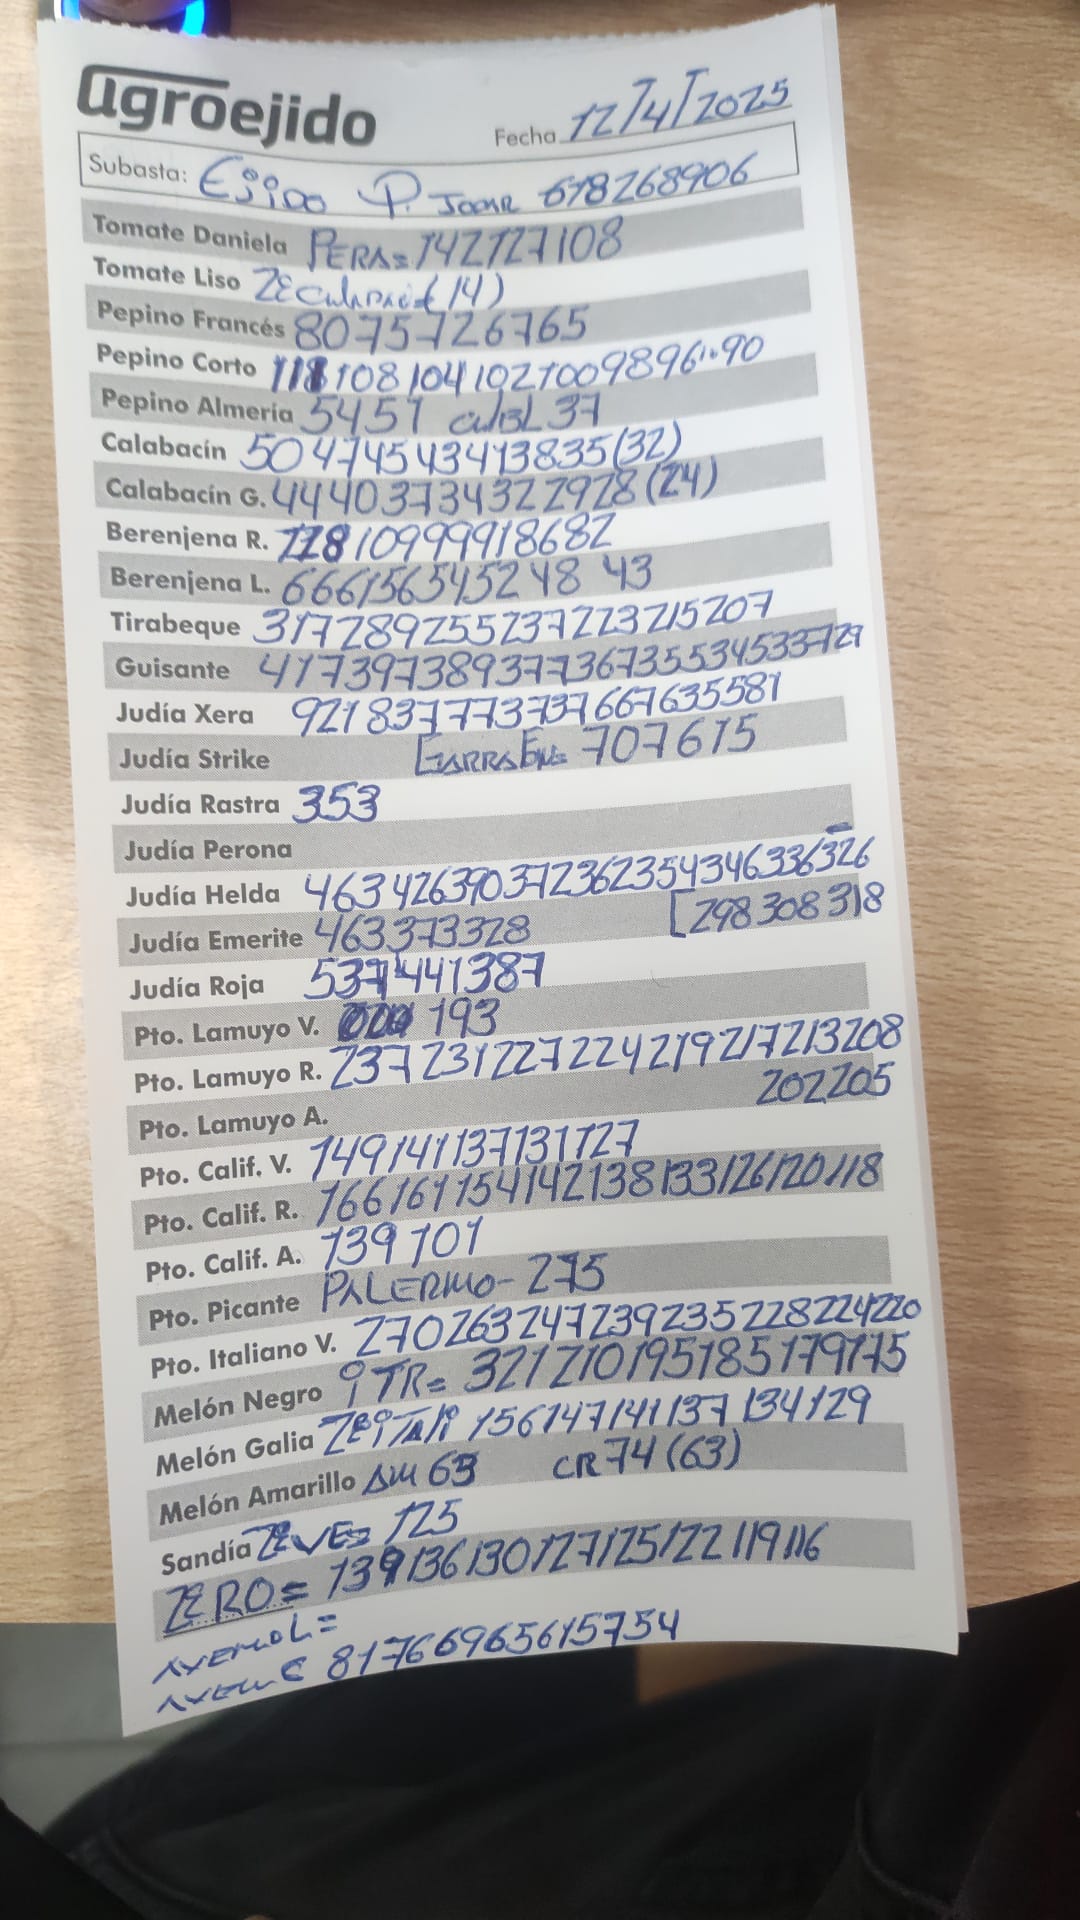 agroejido
Fecha 12/4/2025
Subasta: Ejido P. JOMR 678268906
Tomate Daniela PERA= 142127108
Tomate Liso
Pepino Francés 8075726765
Pepino Corto 118108104102100989690
Pepino Almería 5451 37
Calabacín 50474543413835(32)
Calabacín G. 44403734322928(24)
Berenjena R. 11810999918682
Berenjena L. 66615654524843
Tirabeque 317289255237223215207
Guisante 41739738937736735534533729
Judía Xera 921837773737667635581
Judía Strike 707615
Judía Rastra 353
Judía Perona
Judía Helda 463426390372362354346336326
Judía Emerite 463373328 [298308318
Judía Roja 537441387
Pto. Lamuyo V. 193
Pto. Lamuyo R. 237231227224219217213208
Pto. Lamuyo A. 202205
Pto. Calif. V. 149141137131127
Pto. Calif. R. 166161154142138133126120118
Pto. Calif. A. 139101
Pto. Picante PALERMO- 275
Pto. Italiano V. 270263247239235228224220
Melón Negro iTR= 321210195185179175
Melón Galia 156147141137134129
Melón Amarillo AM 63 CR74(63)
Sandía 125
ZERO= 139136130127125122119116
81766965615754